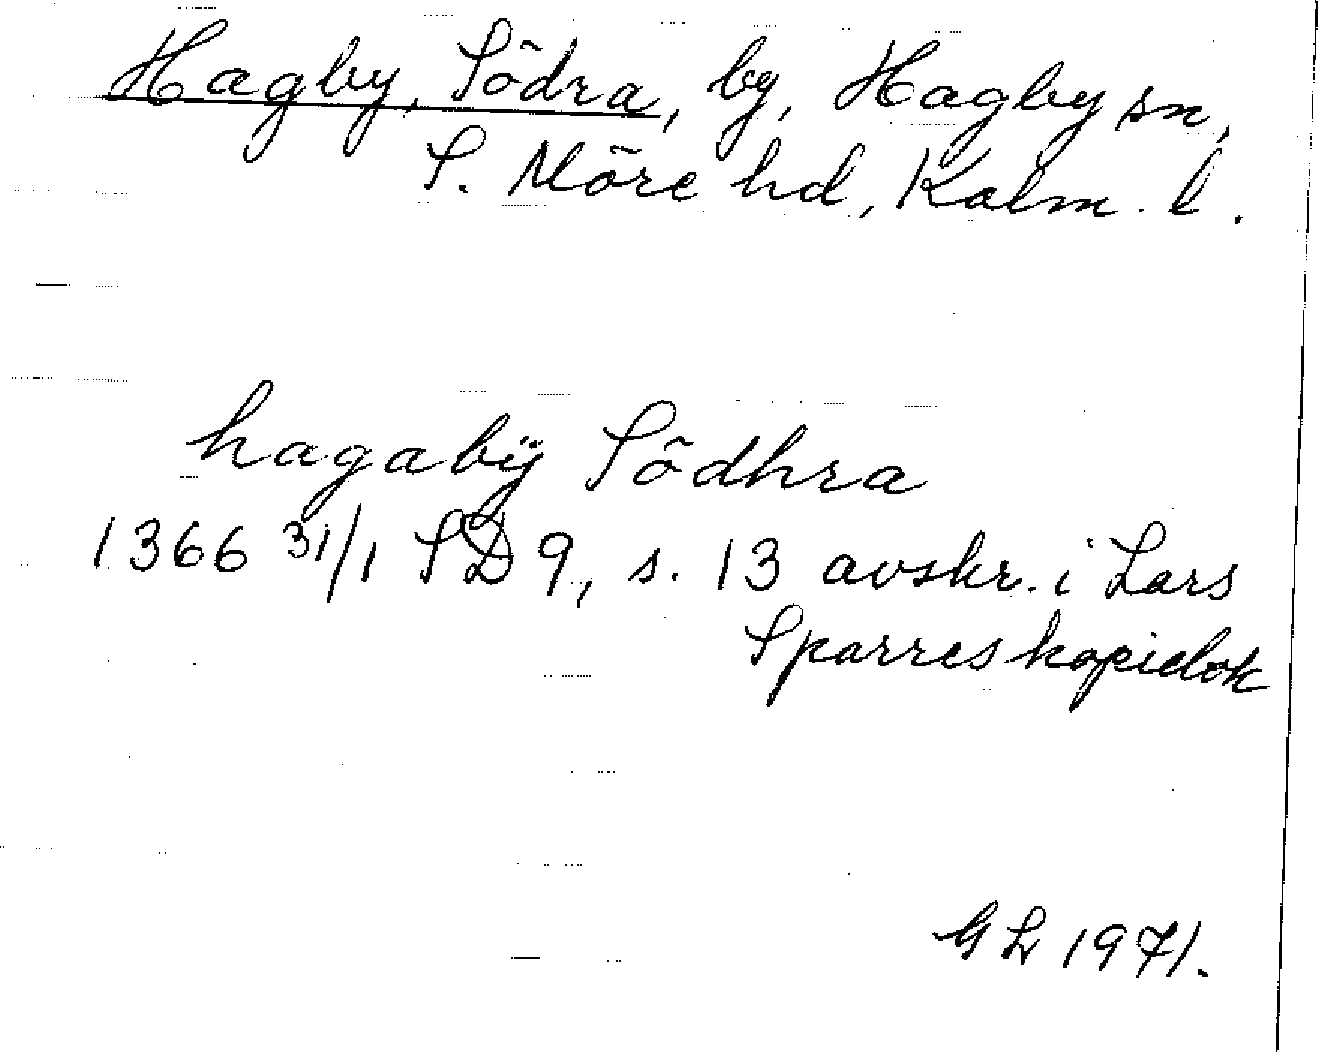 Hagby, Södra, by, Hagby sn,
S. Möre hd, Kalm. l.
hagabÿ Södhra
1366 31/1 SD 9, s. 13 avskr. i Lars
Sparres kopiebok
GL 1971.